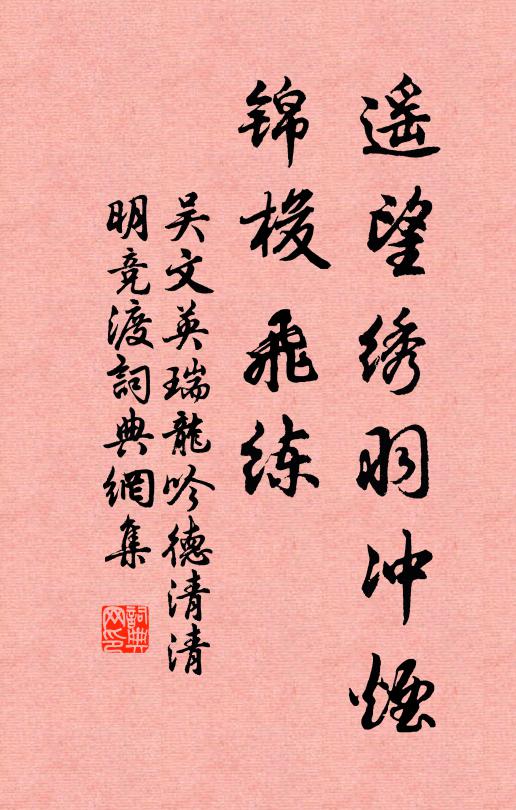 遥望绣羽冲烟
锦梭飞练
吴文英瑞龍吟德清清
明竞渡詞典網集
詞典网印